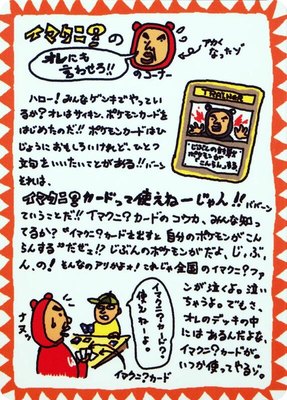 イマクニ?の
オレにも
言わせろ!!
のコーナー
アカく
なったゾ
ハロー!みんなゲンキでやってい
るか?オレはサイキン、ポケモンカードを
はじめたのだ!!ポケモンカードはひ
じょうにおもしろいけれど、ひとつ
文句をいいたいことがある!!ババーン
それは、
イマクニ?カードって使えねーじゃん!!ババババーン
ていうことだ!!イマクニ?カードのコウカ、みんな知っ
てるか?“イマクニ?カードを出すと自分のポケモンがこん
らんする”だぜェ!?じぶんのポケモンがだよ、じ、ぶ、
ん、の!そんなのアリかよォ!これじゃ全国のイマクニ?ファ
ンが泣くよ。泣い
ちゃうよ。でもさ、
オレのデッキの中
には あるんだよな、
イマクニ?カードが。
いつか使ってやるゾ。
TRAINER
じぶんの
ポケモンが
こんらんする
イマクニ?カード
使えねーよ。
ナヌッ
イマクニ?カード